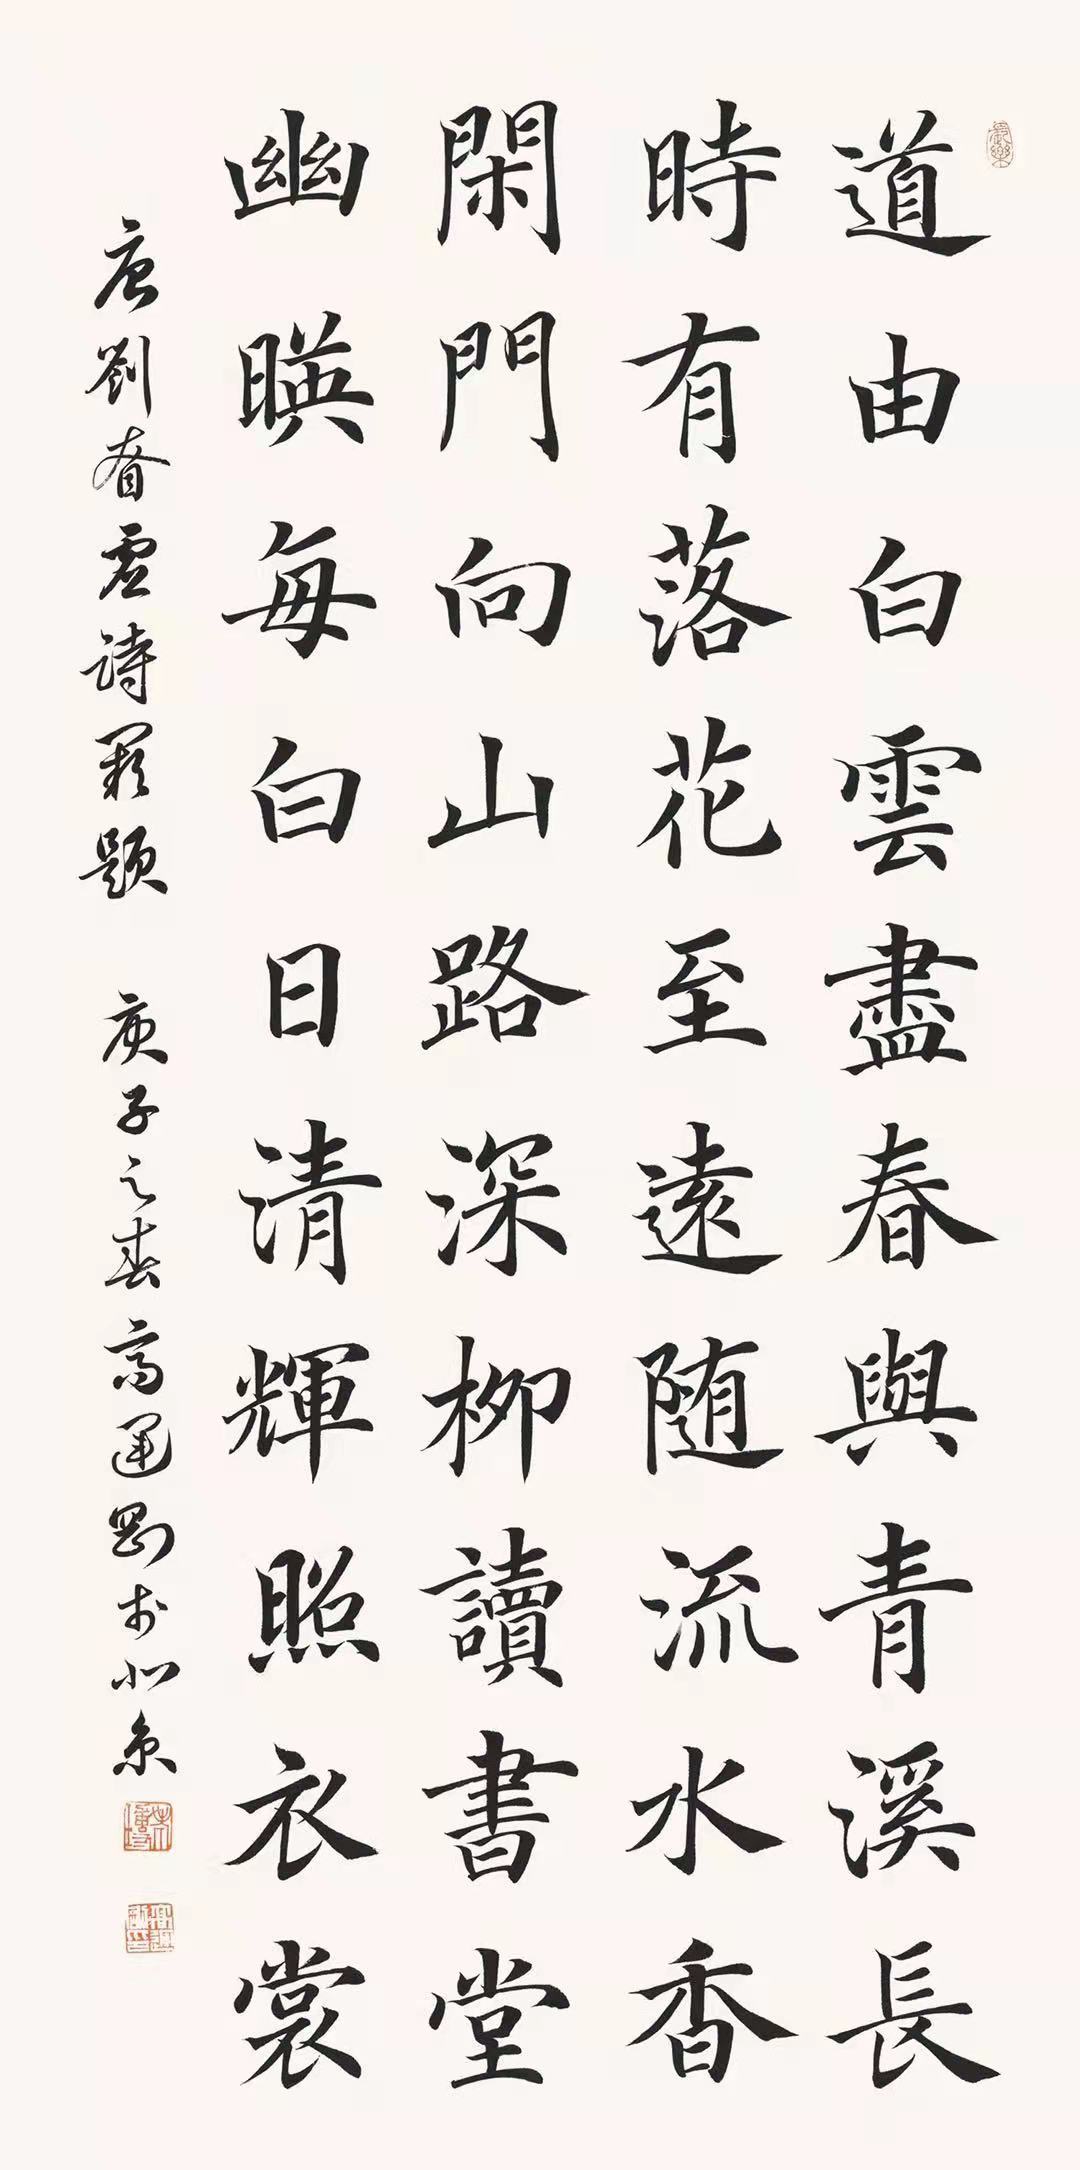 道由白雲盡春與青溪長
時有落花至遠随流水香
閑門向山路深柳讀書堂
幽暎每白日清輝照衣裳
唐劉眘虚詩闕題 庚子之春高運剛於北京